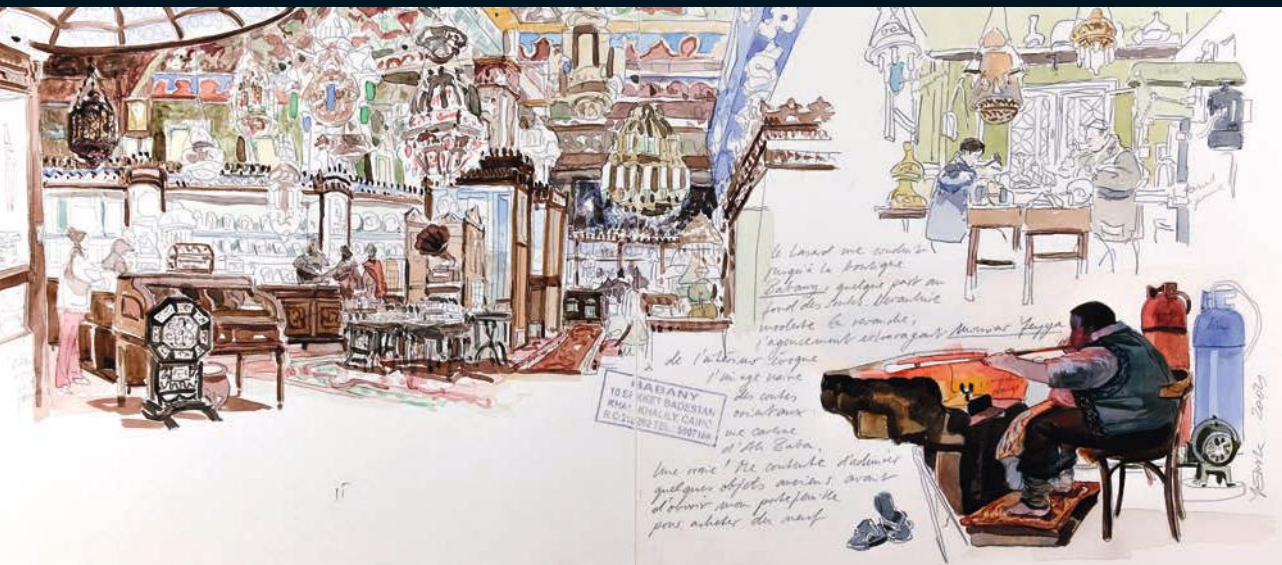 le hasard me conduit
jusqu'à la boutique
Babany, quelque part au
fond des souks. Devanture
modeste. En revanche,
l'agencement extravagant
de l'intérieur évoque
l'image naïve
des contes
orientaux :
une caverne
d'Ali Baba,
Une vraie ! Me contente d'admirer
quelques objets anciens avant
d'ouvrir mon portefeuille
pour acheter du neuf
Monsieur Yeyya
BABANY
BADESTAN
KHALILY, CAIRO